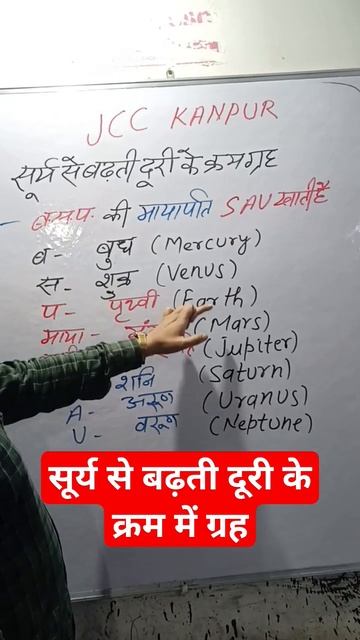 JCC KANPUR
सूर्य से बढ़ती दूरी के क्रम ग्रह
ब.स.प. की मायापति SAU खाती है
ब- बुध (Mercury)
स- शुक्र (Venus)
प- पृथ्वी (Earth)
माया- (Mars)
(Jupiter)
शनि (Saturn)
A- अरुण (Uranus)
U- वरुण (Neptune)
सूर्य से बढ़ती दूरी के
क्रम में ग्रह